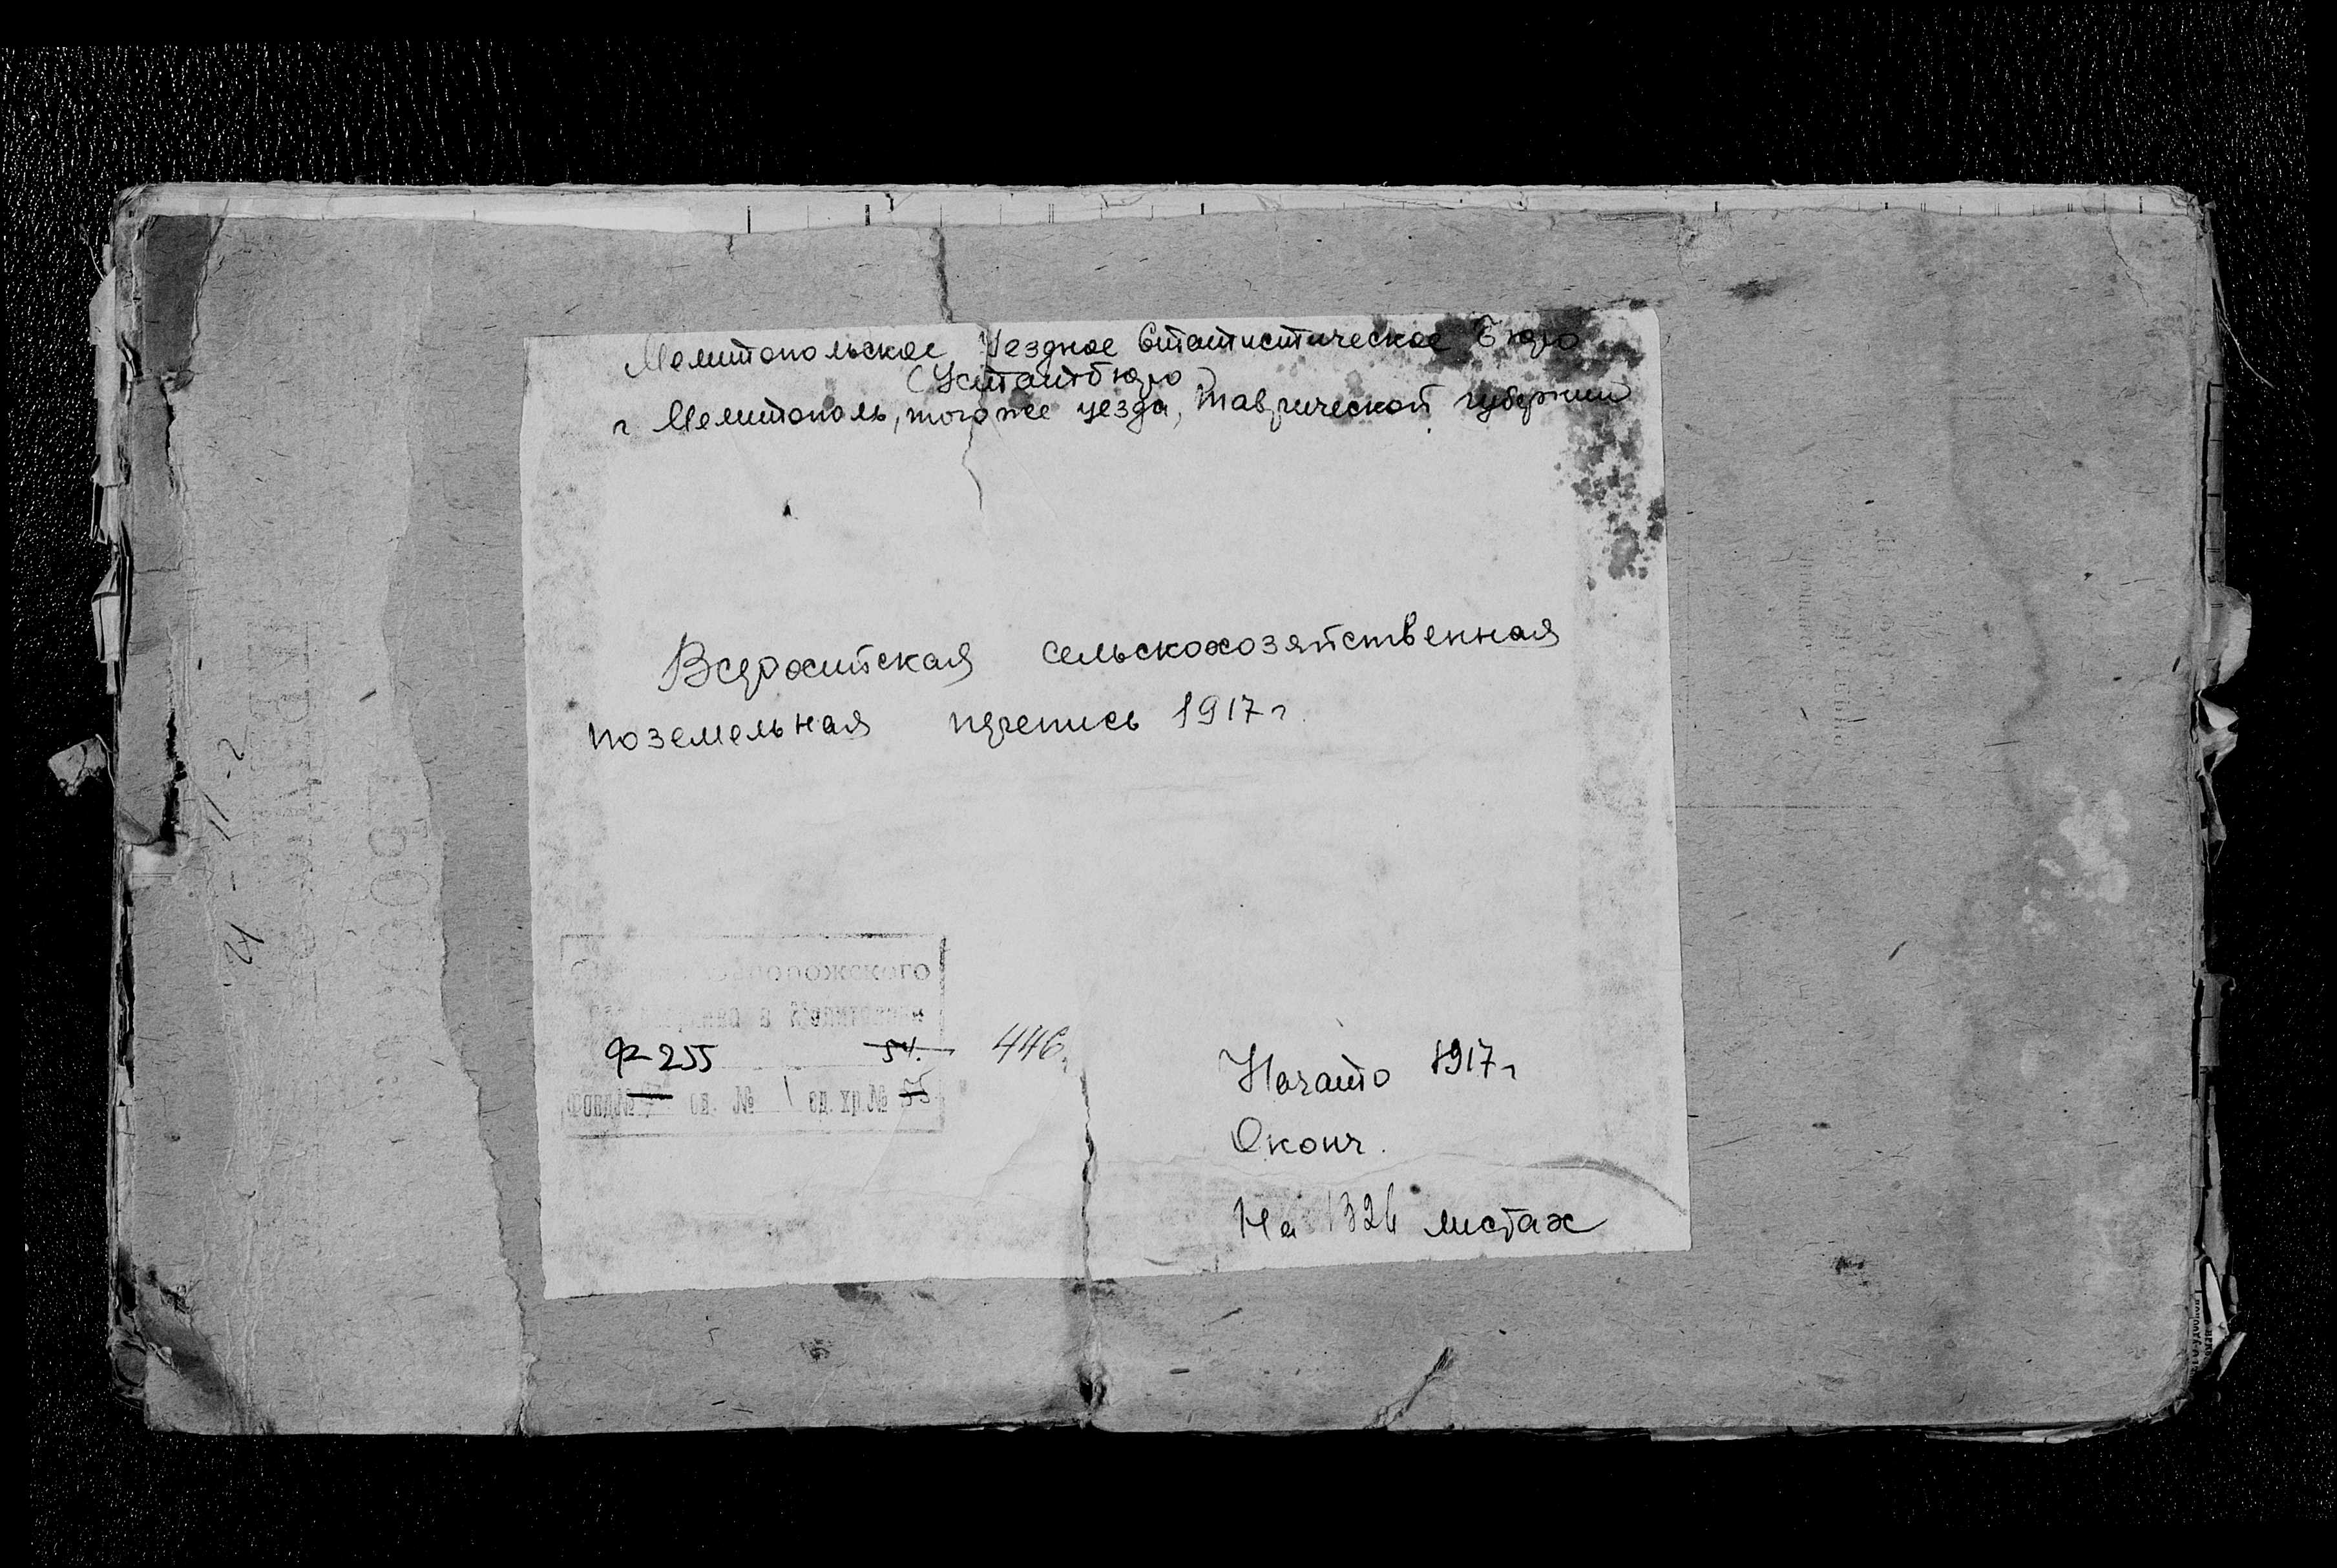 Мелитопольское Уездное Статистическое Бюро
(Устатбюро)
г Мелитополь, того же уезда, Таврической губернии
Всеросийская сельскохозяйственная
поземельная перепись 1917 г.
Запорожского
в Мелитополе
Ф-255 54. 446
Фонд № оп. № 1 ед. хр. № 55
Начато 1917 г
Оконч.
На 1326 листах